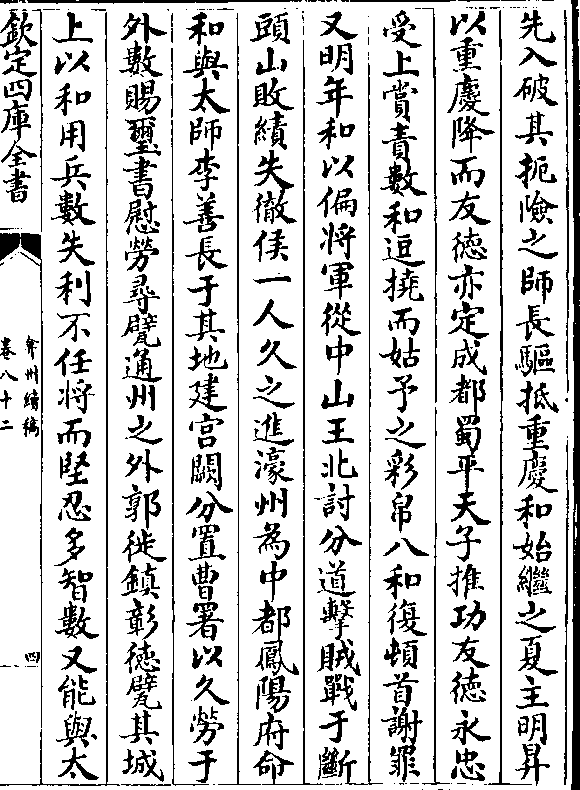 先入破其扼險之師長驅抵重慶和始繼之夏主明昇
以重慶降而友德亦定成都蜀平天子推功友德永忠
受上賞責數和逗撓而姑予之彩帛八和復頓首謝罪
又明年和以偏將軍從中山王北討分道擊賊戰于斷
頭山敗績失徹侯一人久之進濠州為中都鳳陽府命
和與太師李善長于其地建宮闕分置曹署以久勞于
外數賜璽書慰勞尋甓通州之外郭徙鎮彰徳甓其城
上以和用兵數失利不任將而堅忍多智數又能與太
欽定四庫全書
弇州續稿
卷八十二
四